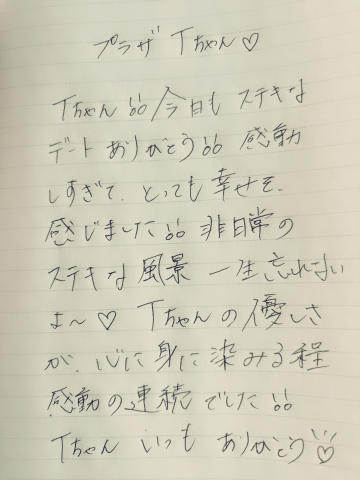 プラザ Tちゃん♡
Tちゃん!! 今日も ステキな
デート ありがとう!! 感動
しすぎて、とっても 幸せを、
感じました!! 非日常の
ステキな 風景 一生 忘れない
よ〜♡ Tちゃんの優しさ
が、心に 身に 染みる程
感動の連続でした!!
Tちゃん いつも ありがとう♡